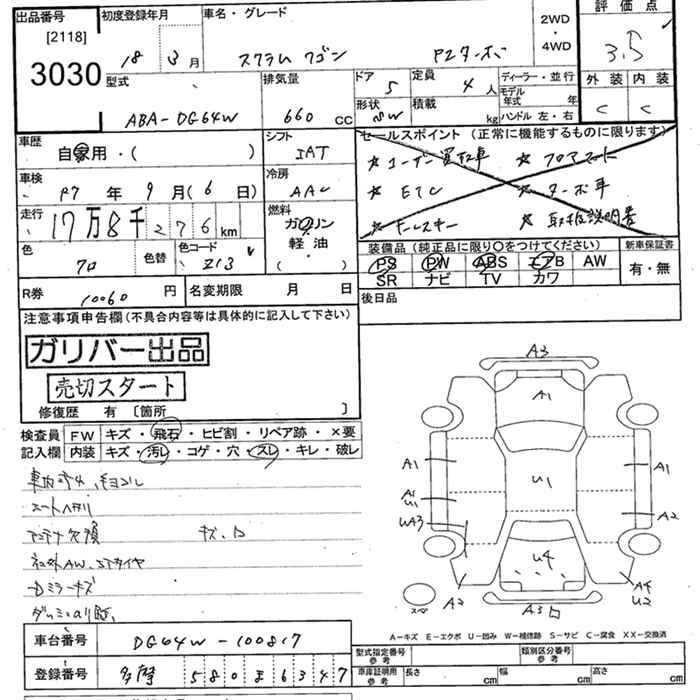 出品番号 初度登録年月 車名・グレード 2WD・4WD 評価点
[2118]
3030
18年3月 スクラムワゴン PZターボ 3.5
型式 排気量 ドア 定員 ディーラー・並行 外装 内装
ABA-DG64W 660 CC 5 4人 モデル年式 年 C C
形状 SW 積載 kg ハンドル 左・右
車歴 自家用・( ) シフト IAT セールスポイント (正常に機能するものに限ります)
★ユーザー買取車 ★フロアマット
車検 R7年9月(6日) 冷房 AAC ★ETC ★ターボ車
走行 17万8千276km 燃料 ガソリン 軽油 ( ) ★キーレスキー ★取扱説明書
色 クロ 色替 色コード ZJ3
装備品 (純正品に限り○をつけてください) 新車保証書
PS PW ABS エアB AW 有・無
SR ナビ TV カワ
R券 10060円 名変期限 月 日 後日品
注意事項申告欄(不具合内容等は具体的に記入して下さい)
ガリバー出品
売切スタート
修復歴 有 〔箇所 〕
検査員 FW キズ・飛石・ヒビ割・リペア跡・×要
記入欄 内装 キズ・汚レ・コゲ・穴・スレ・キレ・破レ
シートヘタリ
アンテナ欠損 キズ、凹
社外AW、STタイヤ
Dミラーキズ
A3
A1
A1 U1 A1
A1 U1 A2
WA3
U4
A2 A3 A4 U2
A-キズ E-エクボ U-凹み W-補修跡 S-サビ C-腐食 XX-交換済
車台番号 DG64W-100817
型式指定番号 参考 類別区分番号 参考
登録番号 多摩 580 ま 6347
車庫証明用 参考 長さ cm 幅 cm 高さ cm